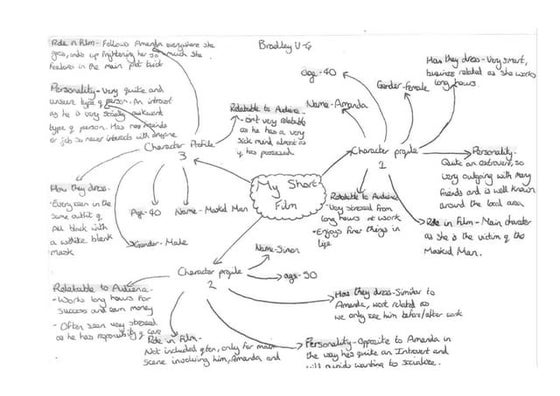 Role in Film - Follows Amanda everywhere she
goes, ends up frightening her so much she
features in the main plot twist
Bradley
Personality - Very quite and
unsure type of person. An introvert
as he is very socially awkward
type of person. Has no friends
or job so never interacts with anyone
Relatable to Audience
- isnt very relatable
as he has a very
sick mind almost as
if he's possessed.
Character Profile
3
How they dress
- Every seen in the
same outfit of
all black with
a white blank
mask
Age - 40
Name - Masked Man
Gender - Male
My Short
Film
Age - 40
Name - Amanda
Gender - Female
How they dress - Very smart,
business related as she works
long hours
Character profile
1
Personality -
Quite an extrovert, so
very outgoing with many
friends and is well known
around the local area
Relatable to Audience
- Very stressed from
long hours at work
- Enjoys finer things in
life
Role in Film - Main character
as she is the victim of the
Masked Man.
Character profile
2
Name - Simon
age - 50
Relatable to Audience
- Works long hours for
success and earn money
- Often seen very stressed
as he has responsibility of
Role in Film -
Not included often, only for main
scene involving him, Amanda and
How they dress - Similar to
Amanda, work related as
we only see him before/after work
Personality - Opposite to Amanda in
the way he's quite an Introvert and
wanting to socialise.